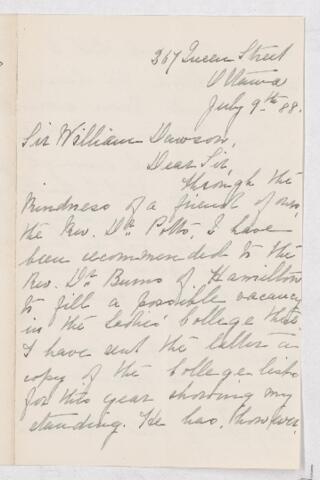 367 Queen Street
Ottawa
July 9th 88.
Sir William Dawson,
Dear Sir,
Through the
kindness of a friend of ours,
the Rev. Dr. Potts, I have
been recommended to the
Rev. Dr. Burns of Hamilton
to fill a possible vacancy
in the Ladies' College there.
I have sent the latter a
copy of the College lists
for this year showing my
standing. He has, however,